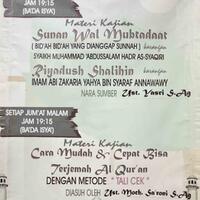 JAM 19:15
(BA'DA ISYA)
Materi Kajian
Sunan Wal Mubtadaat
( BID'AH BID'AH YANG DIANGGAP SUNNAH ) karangan
SYAIKH MUHAMMAD 'ABDUSSALAM HADR AS-SYAQIRI
Riyadush Shalihin karangan
IMAM ABI ZAKARIA YAHYA BIN SYARAF ANNAWAWY
NARA SUMBER Ust. Yasri S.Ag
SETIAP JUM'AT MALAM
JAM 19:15
(BA'DA ISYA)
Materi Kajian
Cara Mudah & Cepat Bisa
Terjemah Al Qur'an
DENGAN METODE " TALI CEK "
DIASUH OLEH Ust. Moch. Sa'roni S.Ag